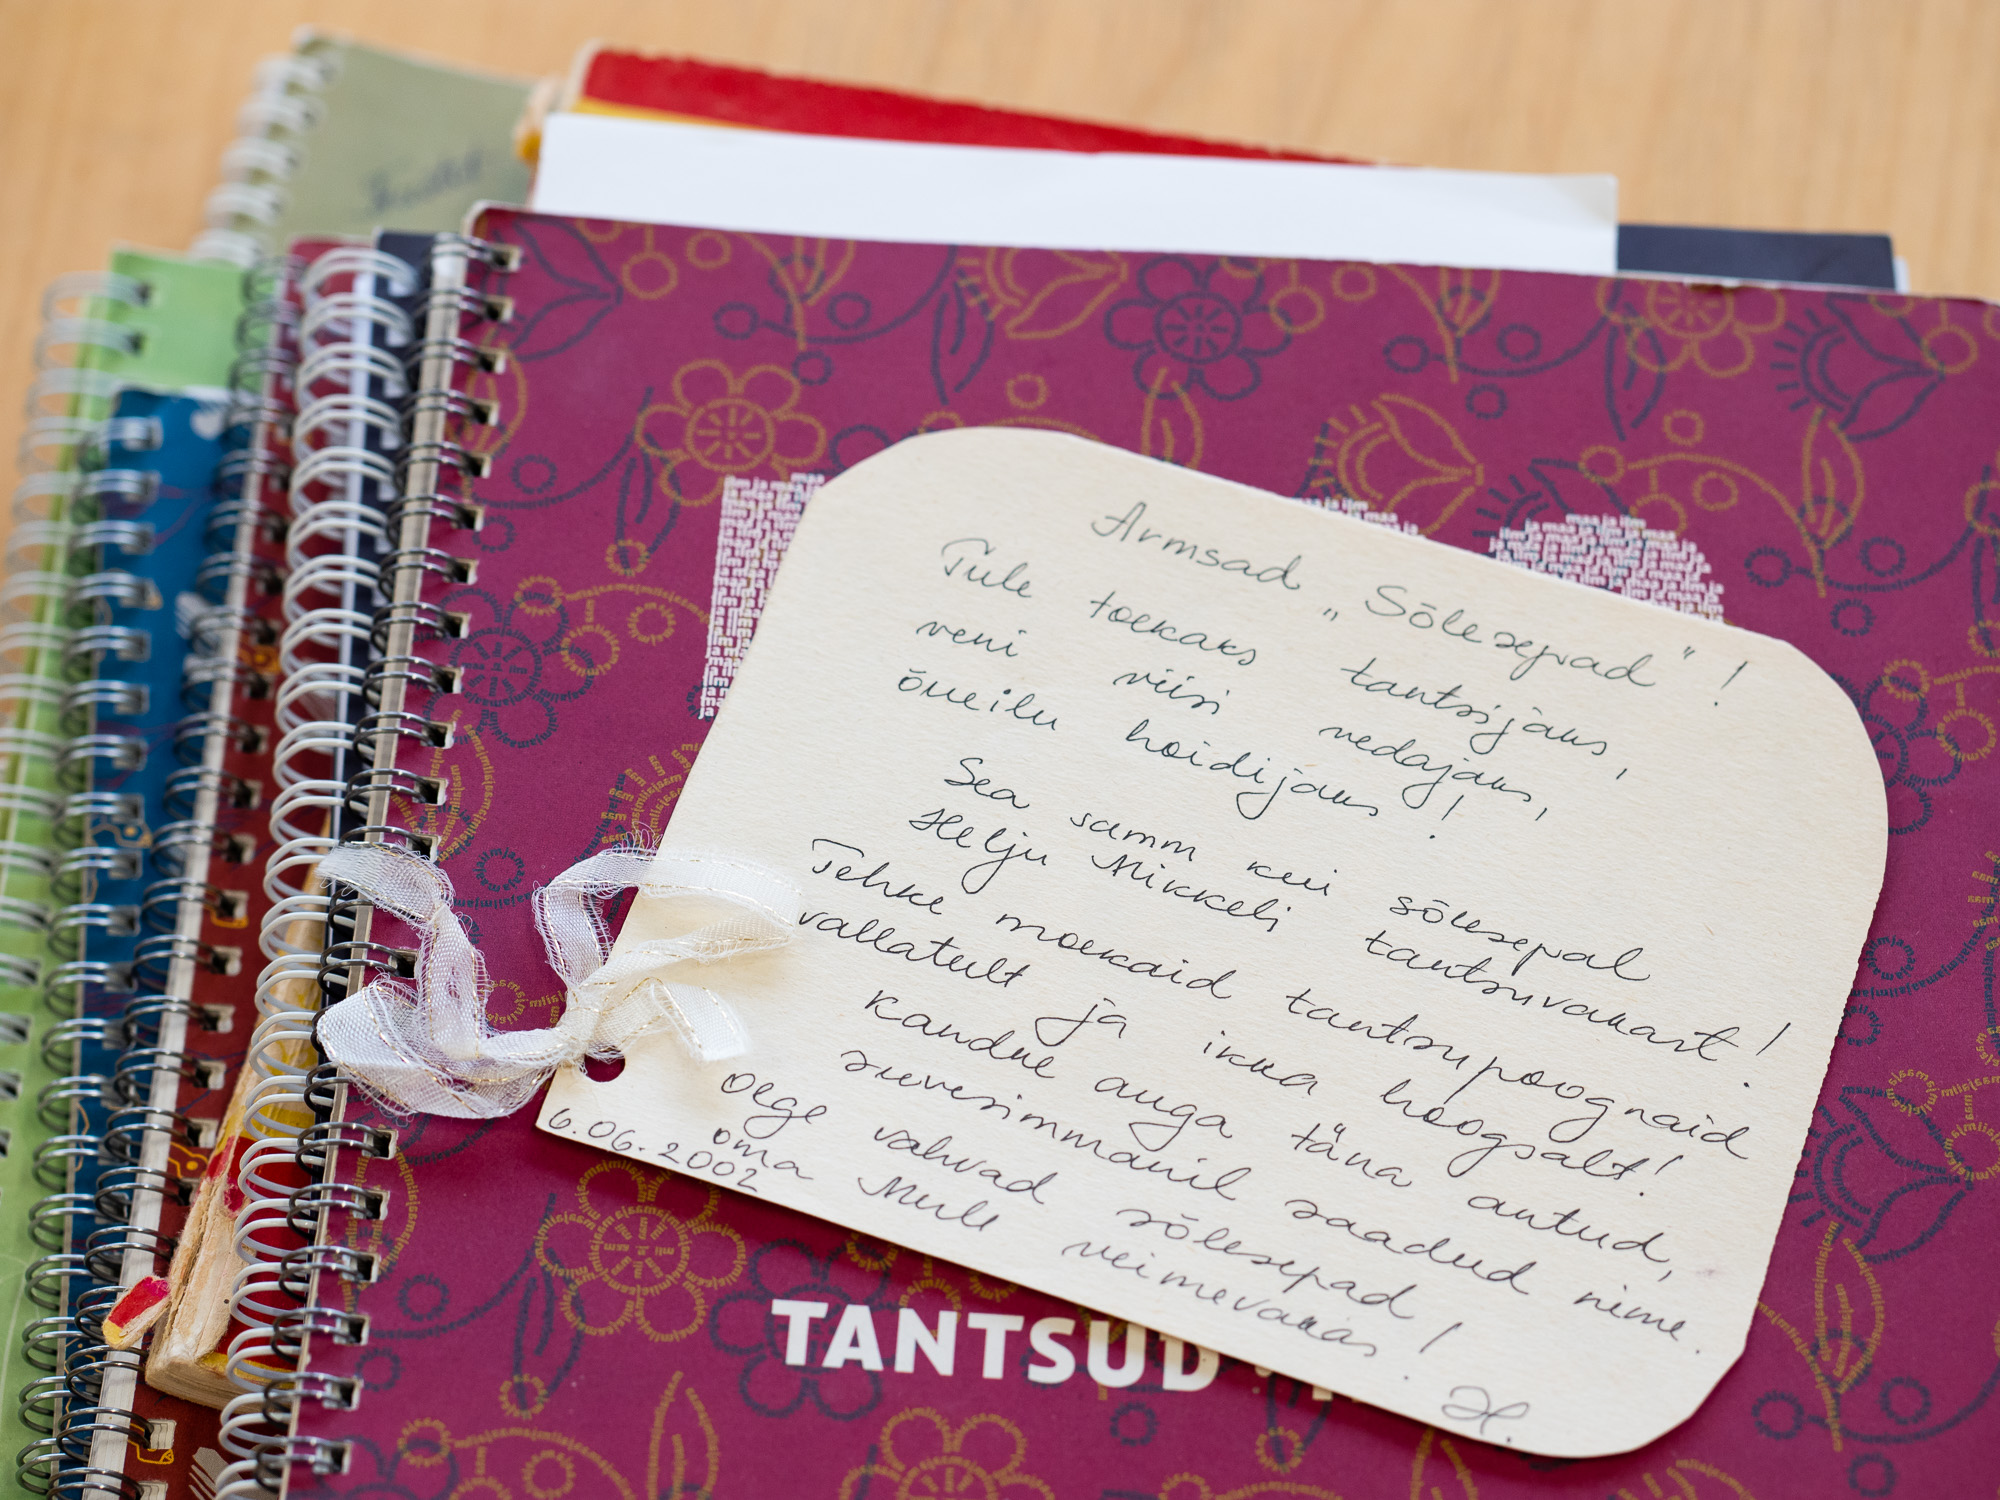 Armsad „Sõlesepad"!
Tule toekaks tantsijaks,
veni viisi vedajaks,
õneilu hoidijaks!
Sea samm kui sõlesepal
Helju Mikkeli tantsuvakast!
Tehke moekaid tantsupoognaid
vallatult ja ikka hoogsalt!
Kandke auga täna antud,
suvesimmanil saadud nime.
Olge vahvad sõlesepad!
oma Mulk veimevakas!
6.06.2002
H.
TANTSUD